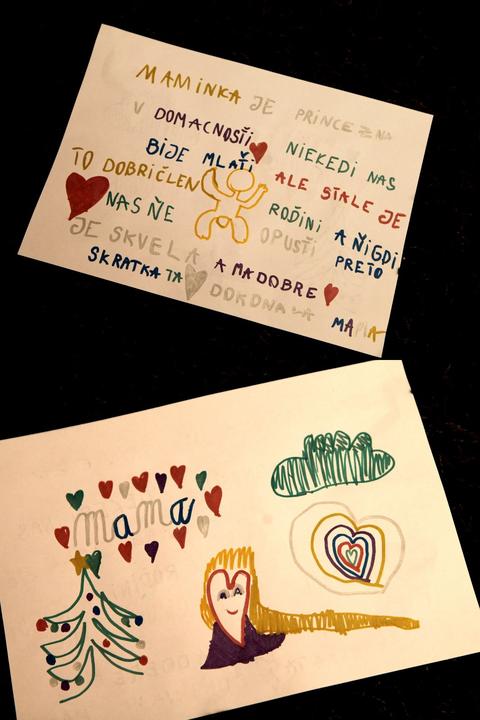 MAMINKA JE PRINCEZNA
V DOMACNOSŤI NIEKEDI NAS
BIJE MLAŤI ALE STALE JE
TO DOBRIČLEN RODINI A ŇIGDI
NAS ŇE OPUSŤI PRETO
JE SKVELA A MA DOBRE
SKRATKA TA DOKONALA MAMA
mama